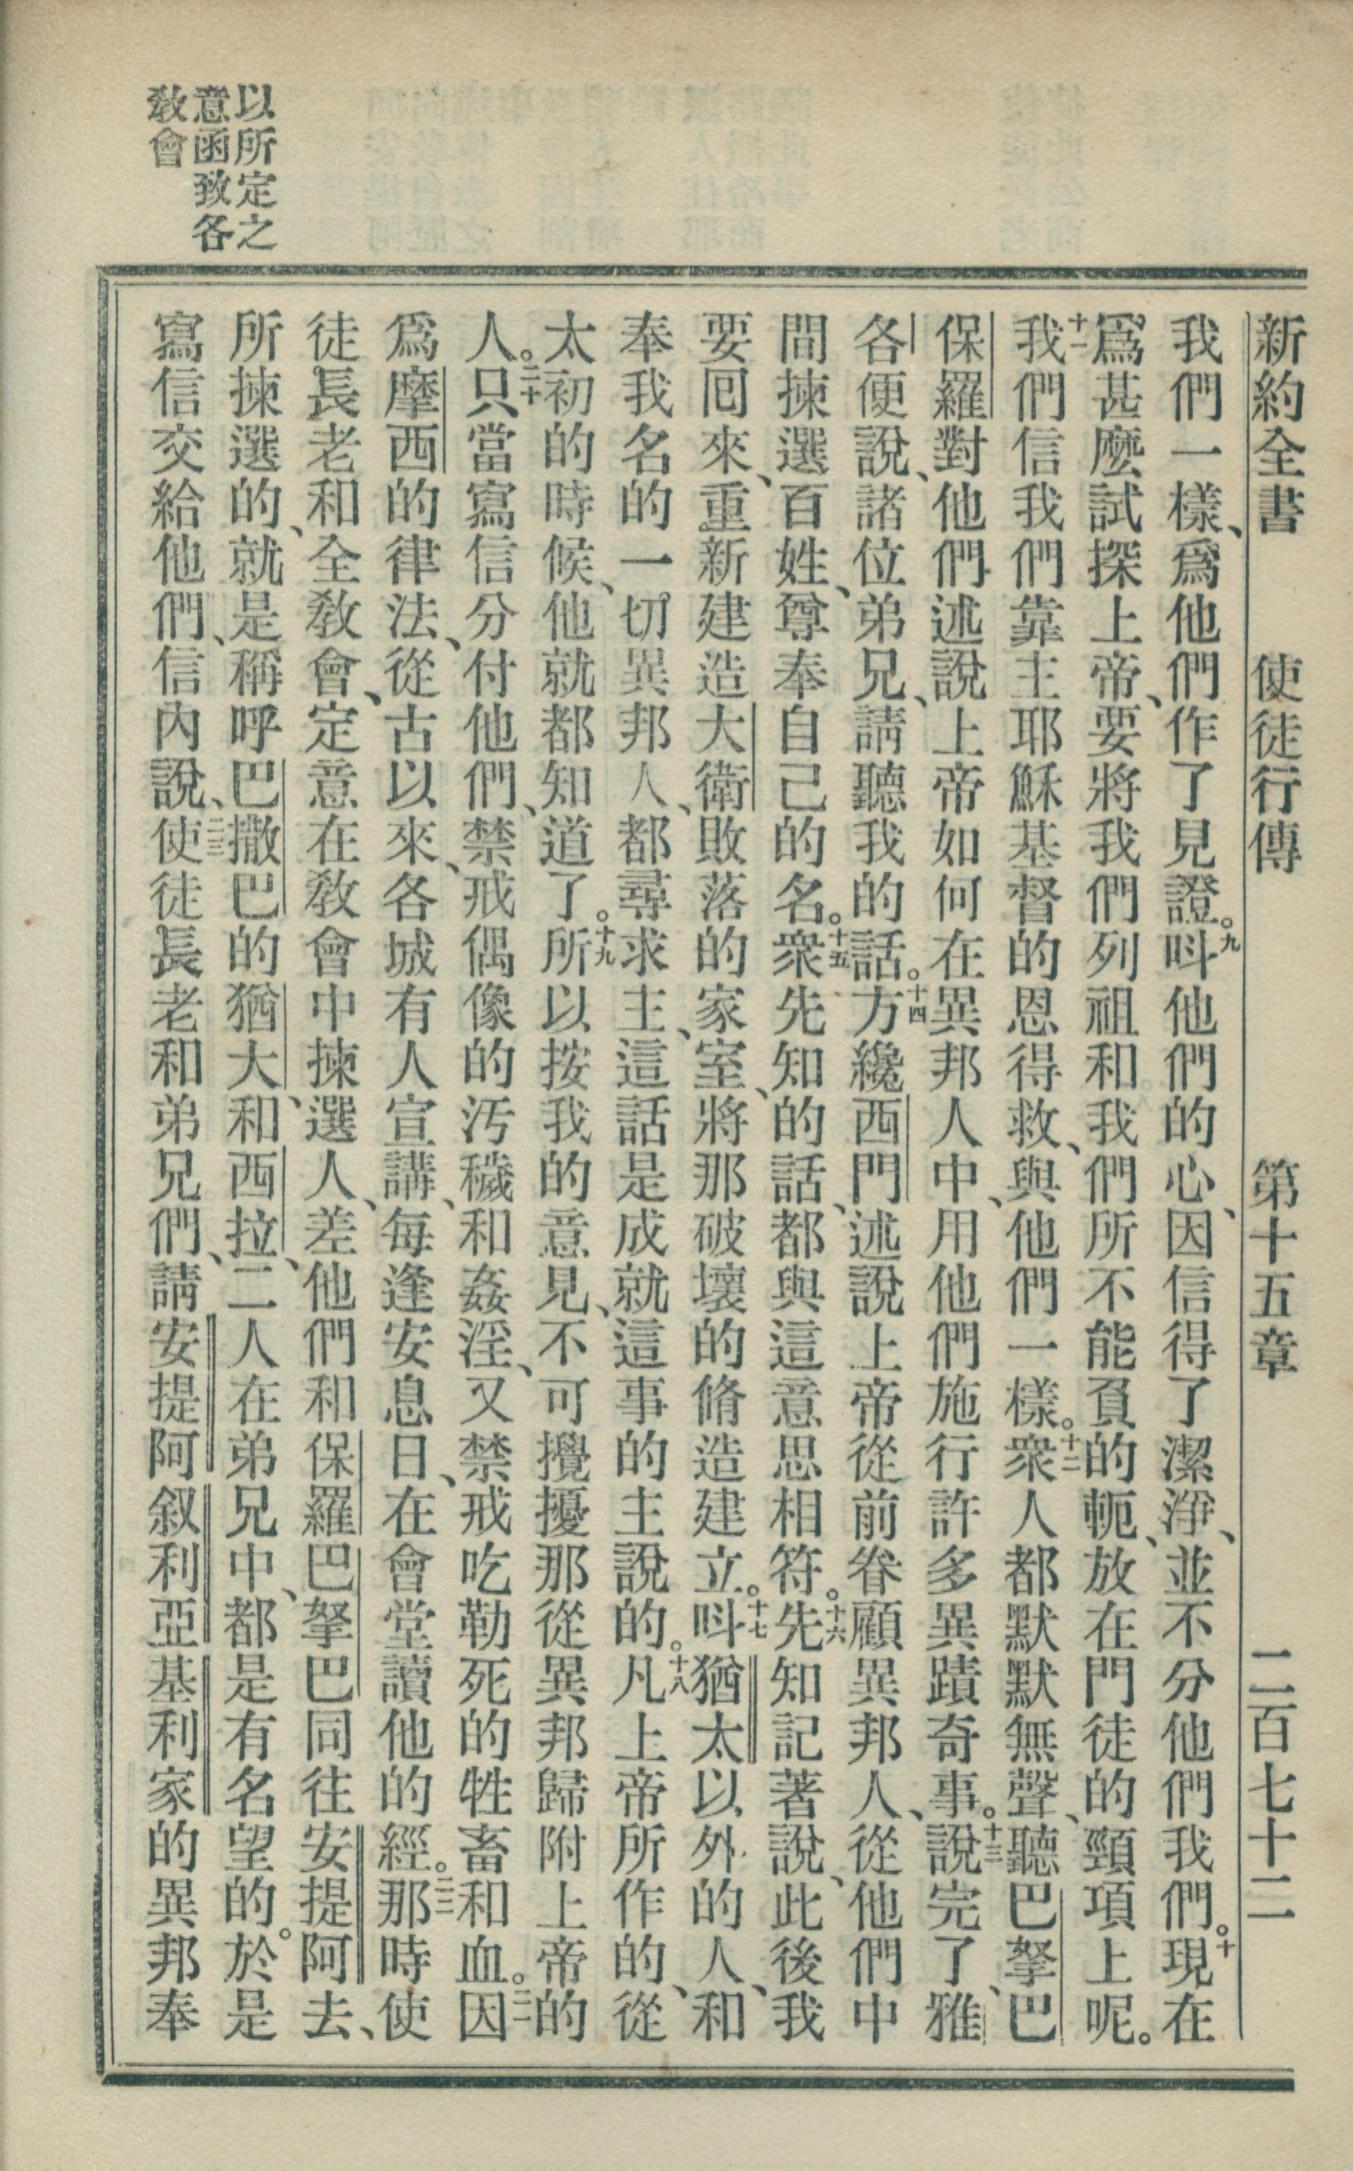 新約全書　使徒行傳　第十五章　二百七十二
我們一樣、爲他們作了見證。九呌他們的心、因信得了潔淨、並不分他們我們。十現在
爲甚麽試探上帝、要將我們列祖和我們所不能負的軛、放在門徒的頸項上呢。
十一我們信我們靠主耶穌基督的恩得救、與他們一樣。十二衆人都默默無聲、聽巴拏巴
保羅對他們述說上帝如何在異邦人中、用他們施行許多異蹟奇事。十三說完了、雅
各便說、諸位弟兄、請聽我的話。十四方纔西門述說上帝從前眷顧異邦人、從他們中
間揀選百姓、尊奉自己的名。十五衆先知的話、都與這意思相符。十六先知記著說、此後我
要囘來、重新建造大衛敗落的家室、將那破壞的脩造建立。十七呌猶太以外的人、和
奉我名的一切異邦人、都尋求主、這話是成就這事的主說的。十八凡上帝所作的、從
太初的時候、他就都知道了。十九所以按我的意見、不可攪擾那從異邦歸附上帝的
人。二十只當寫信分付他們、禁戒偶像的汚穢和姦淫、又禁戒吃勒死的牲畜和血。二一因
爲摩西的律法、從古以來、各城有人宣講、每逢安息日、在會堂讀他的經。二二那時使
徒長老和全敎會、定意在敎會中揀選人、差他們和保羅巴拏巴同往安提阿去、
所揀選的、就是稱呼巴撒巴的猶大、和西拉、二人在弟兄中、都是有名望的。於是
寫信交給他們、信內說、二三使徒長老和弟兄們、請安提阿叙利亞基利家的異邦奉
以所定之
意函致各
敎會